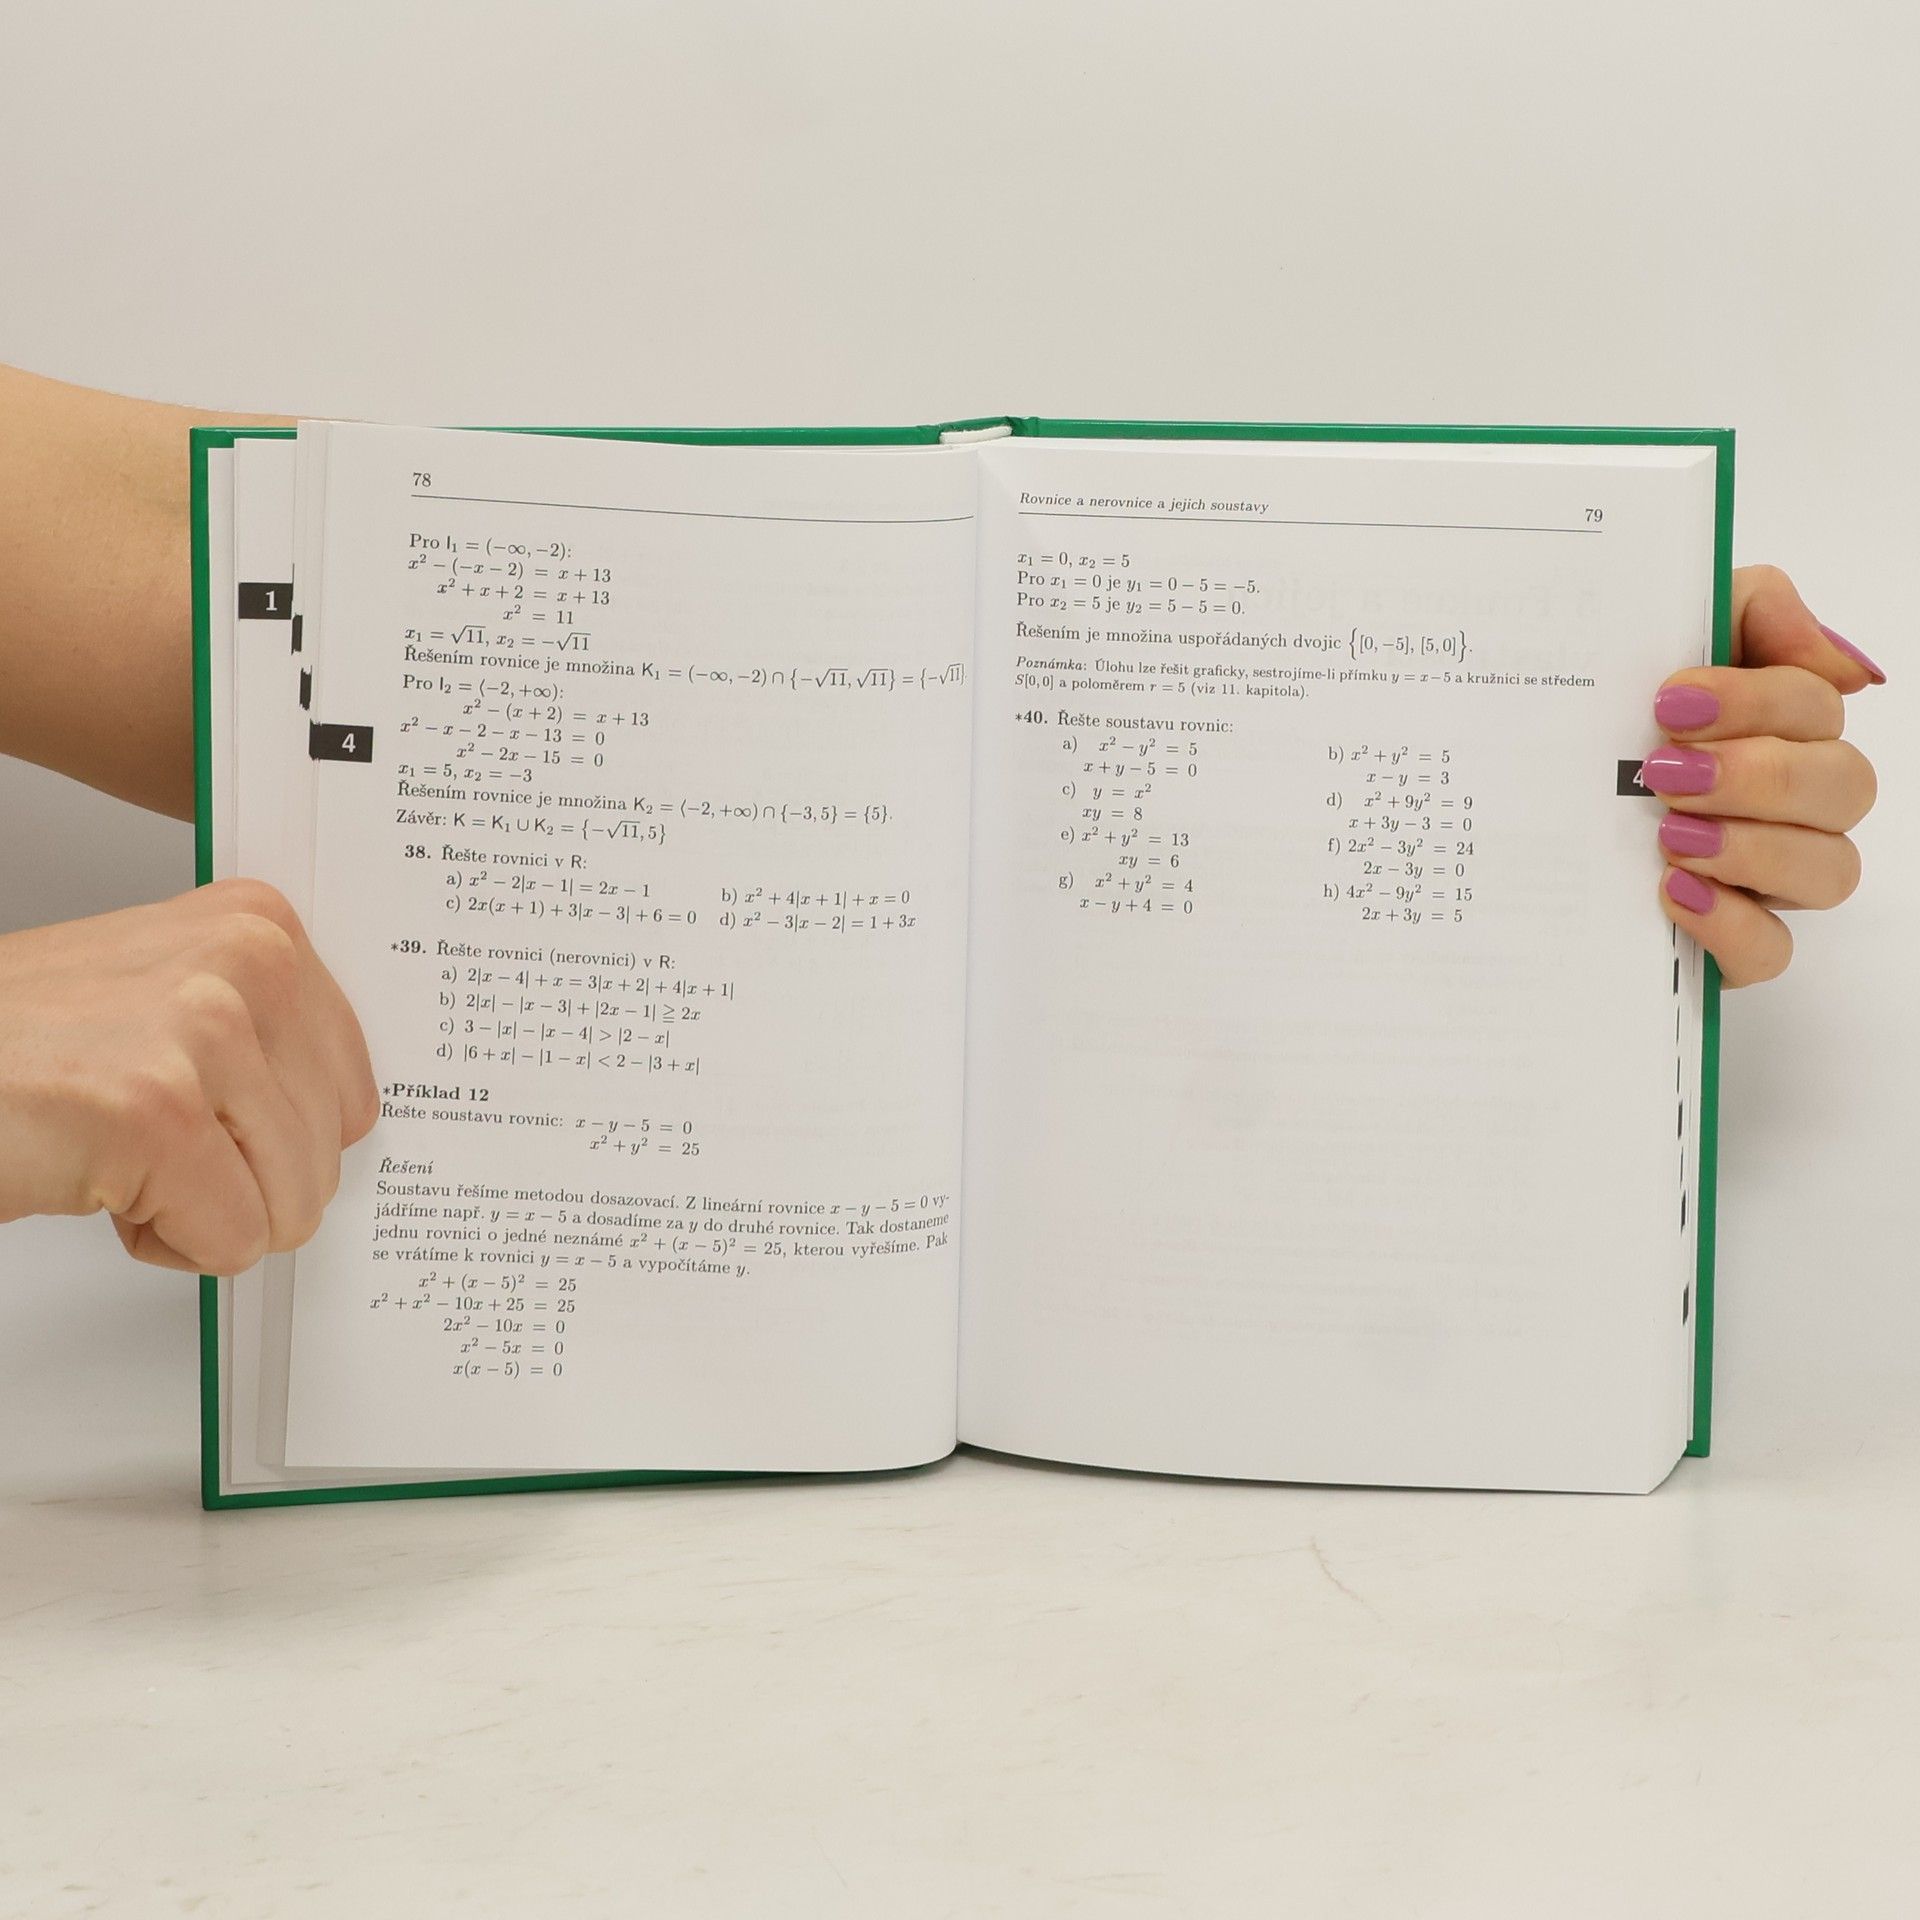 78
Pro I₁ = (−∞, −2):
x² − (−x − 2) = x + 13
x² + x + 2 = x + 13
x² = 11
x₁ = √11, x₂ = −√11
Řešením rovnice je množina K₁ = (−∞, −2) ∩ {−√11, √11} = {−√11}.
Pro I₂ = ⟨−2, +∞):
x² − (x + 2) = x + 13
x² − x − 2 − x − 13 = 0
x² − 2x − 15 = 0
x₁ = 5, x₂ = −3
Řešením rovnice je množina K₂ = ⟨−2, +∞) ∩ {−3, 5} = {5}.
Závěr: K = K₁ ∪ K₂ = {−√11, 5}
38. Řešte rovnici v R:
a) x² − 2|x − 1| = 2x − 1 b) x² + 4|x + 1| + x = 0
c) 2x(x + 1) + 3|x − 3| + 6 = 0 d) x² − 3|x − 2| = 1 + 3x
*39. Řešte rovnici (nerovnici) v R:
a) 2|x − 4| + x = 3|x + 2| + 4|x + 1|
b) 2|x| − |x − 3| + |2x − 1| ≧ 2x
c) 3 − |x| − |x − 4| > |2 − x|
d) |6 + x| − |1 − x| < 2 − |3 + x|
*Příklad 12
Řešte soustavu rovnic: x − y − 5 = 0
x² + y² = 25
Řešení
Soustavu řešíme metodou dosazovací. Z lineární rovnice x − y − 5 = 0 vy-
jádříme např. y = x − 5 a dosadíme za y do druhé rovnice. Tak dostaneme
jednu rovnici o jedné neznámé x² + (x − 5)² = 25, kterou vyřešíme. Pak
se vrátíme k rovnici y = x − 5 a vypočítáme y.
x² + (x − 5)² = 25
x² + x² − 10x + 25 = 25
2x² − 10x = 0
x² − 5x = 0
x(x − 5) = 0
1
4
Rovnice a nerovnice a jejich soustavy 79
x₁ = 0, x₂ = 5
Pro x₁ = 0 je y₁ = 0 − 5 = −5.
Pro x₂ = 5 je y₂ = 5 − 5 = 0.
Řešením je množina uspořádaných dvojic {[0, −5], [5, 0]}.
Poznámka: Úlohu lze řešit graficky, sestrojíme-li přímku y = x − 5 a kružnici se středem
S[0, 0] a poloměrem r = 5 (viz 11. kapitola).
*40. Řešte soustavu rovnic:
a) x² − y² = 5 b) x² + y² = 5
x + y − 5 = 0 x − y = 3
c) y = x² d) x² + 9y² = 9
xy = 8 x + 3y − 3 = 0
e) x² + y² = 13 f) 2x² − 3y² = 24
xy = 6 2x − 3y = 0
g) x² + y² = 4 h) 4x² − 9y² = 15
x − y + 4 = 0 2x + 3y = 5
4